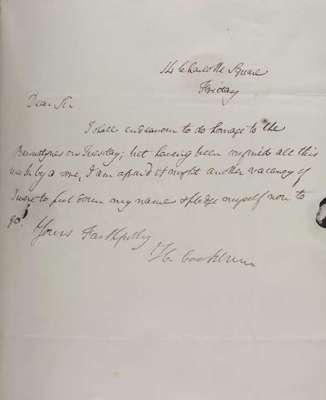 14 Charlotte Square
Friday
Dear Sir
I shall endeavour to do homage to the
on Tuesday; but having been all this
week by a , I am afraid it might another vacancy if
I were to put down my name & pledge myself now to
go.
Yours Faithfully
H Cockburn